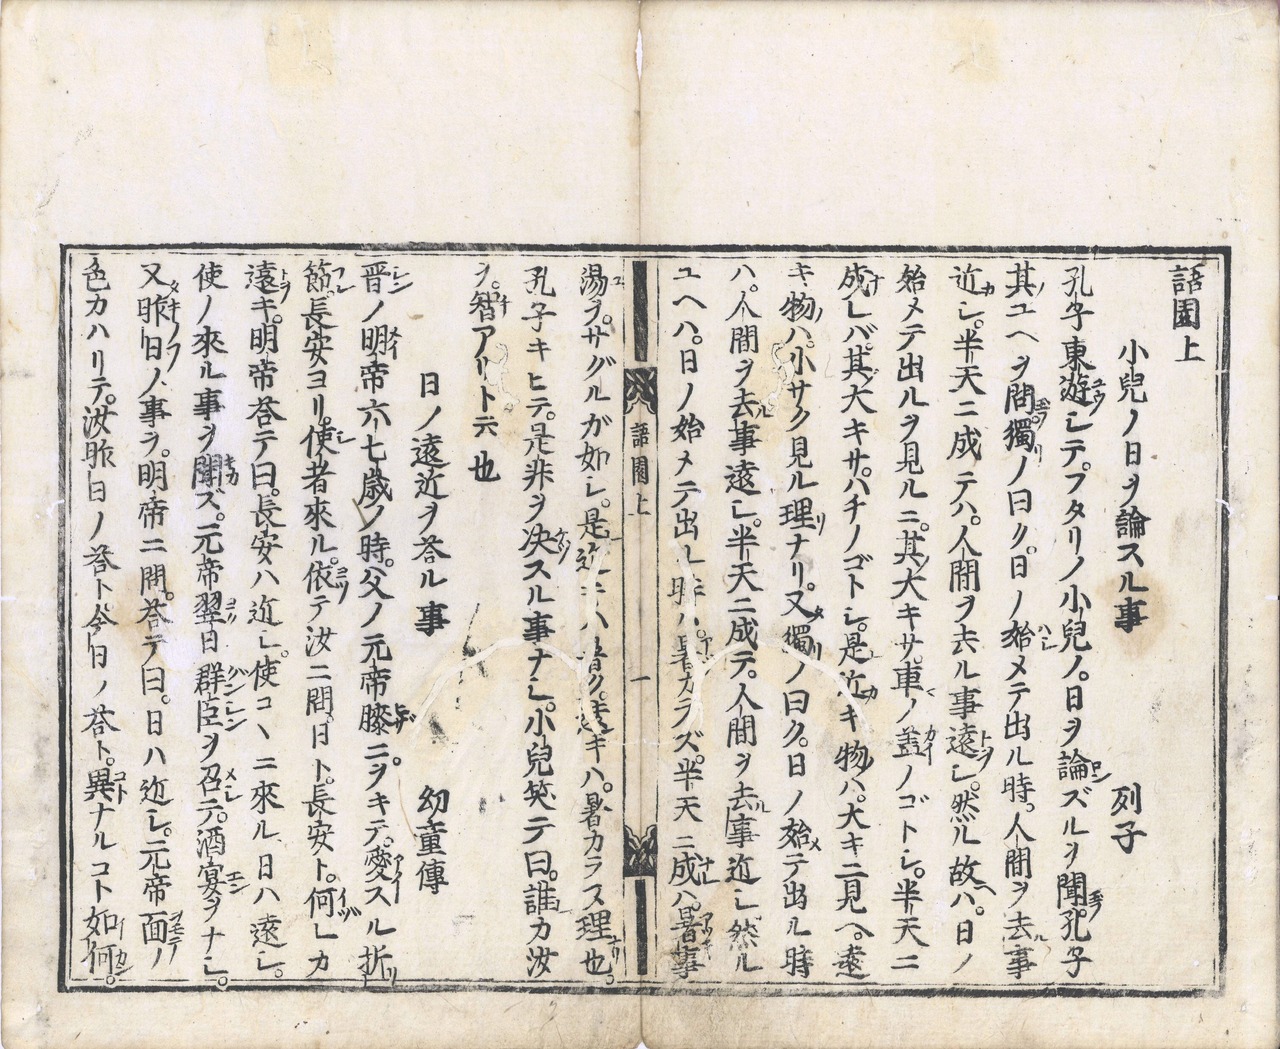 語園上
小兒ノ日ヲ論スル事　列子
孔子東遊シテ。フタリノ小兒ノ。日ヲ論ズルヲ聞。孔子
其ユヘヲ問。獨ノ曰ク。日ノ始メテ出ル時。人間ヲ去事
近シ。半天ニ成テハ。人間ヲ去ル事遠シ。然ル故ハ。日ノ
始メテ出ルヲ見ルニ。其大キサ。車ノ蓋ノゴトシ。半天ニ
成レバ。其大キサ。ハチノゴトシ。是近キ物ハ。大キニ見ヘ。遠
キ物ハ。小サク見ル理ナリ。又獨ノ曰ク。日ノ始テ出ル時
ハ。人間ヲ去事遠シ。半天ニ成テ。人間ヲ去事近シ。然ル
ユヘハ。日ノ始メテ出ル時ハ。暑カラズ。半天ニ成ハ。暑事
語園上　一
湯ヲ。サグルガ如シ。是近キハ暑ク。遠キハ。暑カラス理也。
孔子キヒテ。是非ヲ决スル事ナシ。小兒笑テ曰。誰カ汝
ヲ。智アリト云也
日ノ遠近ヲ荅ル事　幼童傳
晋ノ明帝六七歳ノ時。父ノ元帝膝ニ。ヲキテ。愛スル折
節。長安ヨリ。使者來ル。依テ汝ニ問。日ト。長安ト。何レカ
遠キ。明帝荅テ曰。長安ハ近シ。使コヽニ來ル日ハ遠シ。
使ノ來ル事ヲ聞ズ。元帝翌日群臣ヲ召テ。酒宴ヲナシ。
又昨日ノ事ヲ。明帝ニ問。荅テ曰。日ハ近シ。元帝面ノ
色カハリテ。汝昨日ノ荅ト今日ノ荅ト。異ナルコト如何。